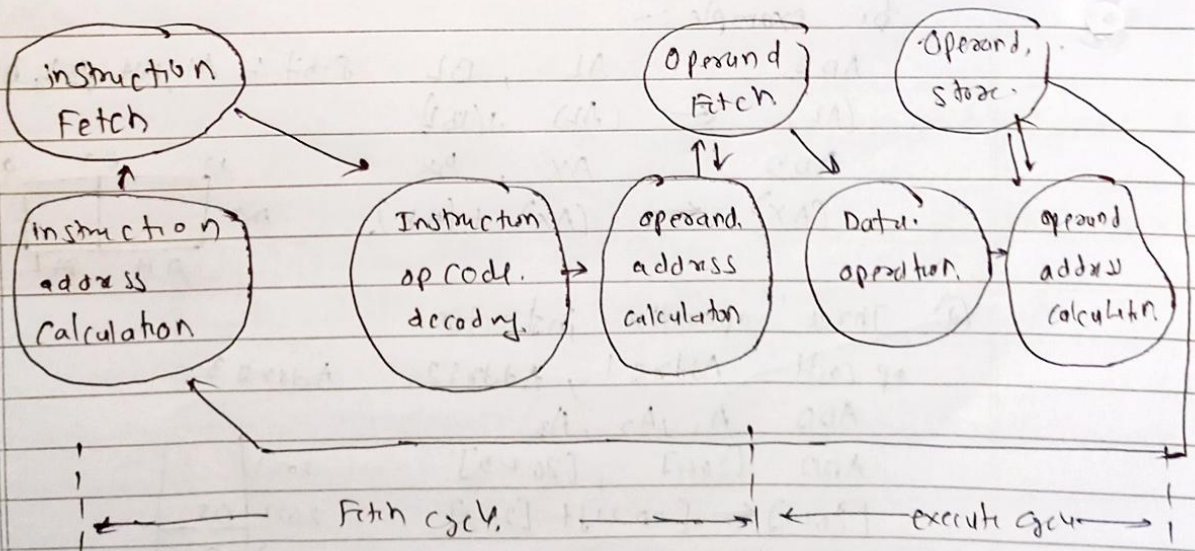 instruction
Fetch
Operand
Fetch
Operand,
store.
instruction
address
calculation
Instruction
op code.
decodng.
operand
address
calculaton
Data.
operation
operand
address
calculatn
Fetch cycle
execute cycle